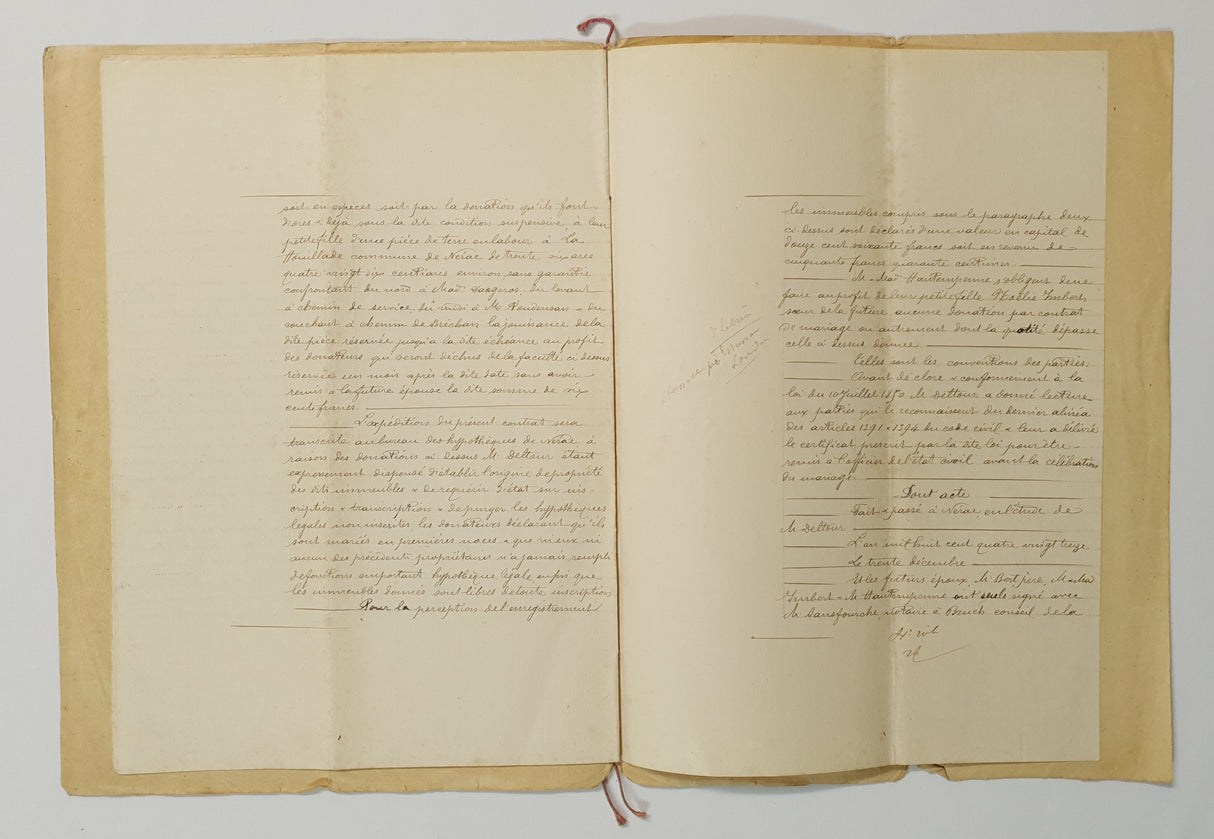 soit en espèces soit par la donation qu'ils font
d'ores & déjà sous la dite condition suspensive à leur
petite fille d'une pièce de terre en labour à La
Houillade commune de Nérac de trente six ares
quatre vingt dix centiares environ sans garantie
confrontant du nord à Mad. Dangeros, du levant
à chemin de service, du midi à M. & du
couchant à chemin de Bréchan la jouissance de la
dite pièce réservée jusqu'à la dite échéance au profit
des donateurs qui seront déchus de la faculté ci dessus
réservée un mois après la dite date sans avoir
remis à la future épouse la dite somme de six
cents francs.
L'expédition du présent contrat sera
transcrite au bureau des hypothèques de Nérac, à
raison des donations ci dessus M. Deltour étant
expressément dispensé d'établir l'origine de propriété
des dits immeubles & de requérir d'état sur ins-
cription & transcription & de purger les hypothèques
légales non inscrites, les donateurs déclarant qu'ils
sont mariés en premières noces & que ni eux ni
aucun des précédents propriétaires n'a jamais rempli
de fonctions emportant hypothèque légale enfin que
les immeubles donnés sont libres de toute inscription
Pour la perception de l'enregistrement
les immeubles compris sous le paragraphe deux
ci dessus sont déclarés d'une valeur en capital de
douze cent soixante francs soit en revenu de
cinquante francs quarante centimes.
M. & Mad. Hautempenne s'obligent de ne
faire au profit de leur petite fille Noélie Imbert
sœur de la future aucune donation par contrat
de mariage ou autrement dont la quotité dépasse
celle ci dessus donnée
Telles sont les conventions des parties.
Avant de clore & conformément à la
loi du 10 Juillet 1850 M. Deltour a donné lecture
aux parties qui le reconnaissent du dernier alinéa
des articles 1391 & 1394 du code civil & leur a délivré
le certificat prescrit par la dite loi pour être
remis à l'officier de l'état civil avant la célébration
du mariage.
Dont acte
Fait & passé à Nérac, en l'étude de
M. Deltour
L'an mil huit cent quatre vingt treize
Le trente décembre
Et les futurs époux, M. Bert père, M. & Mad
Imbert & M. Hautempenne ont seuls signé avec
M. Sansfourche, notaire à Bruch conseil de la